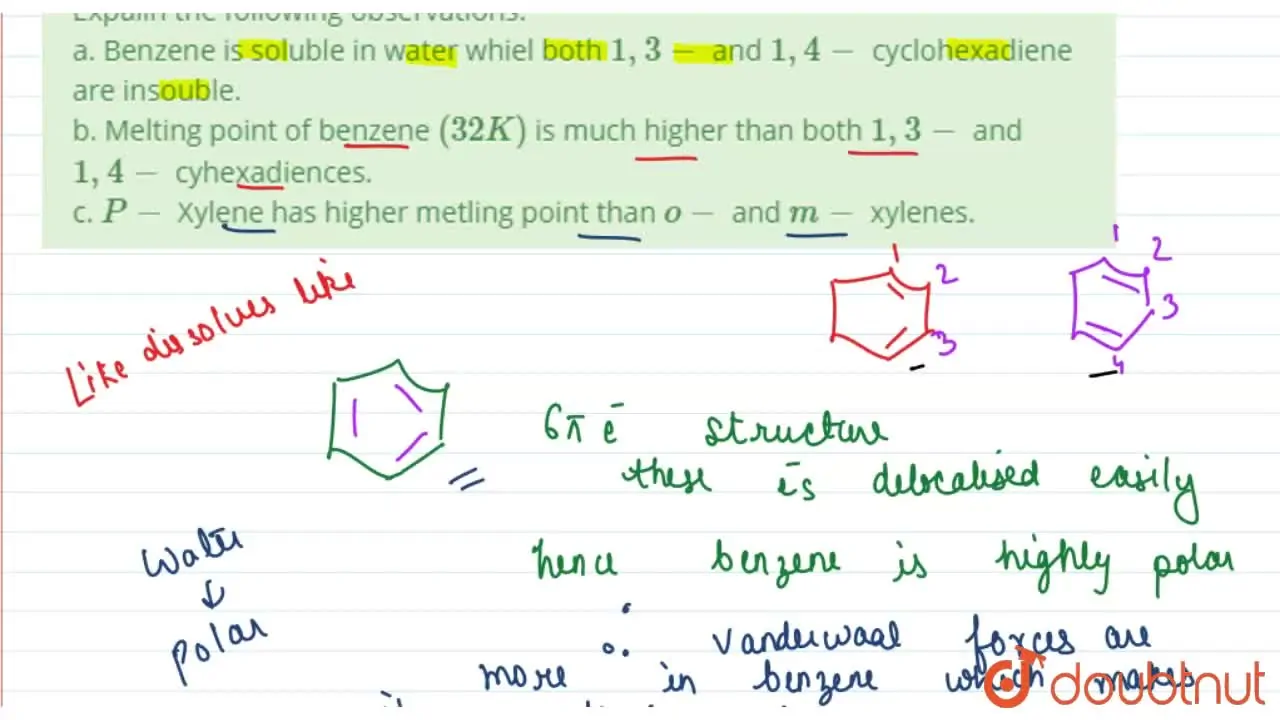 Expalin the following observations.
a. Benzene is soluble in water whiel both 1, 3 − and 1, 4 − cyclohexadiene
are insouble.
b. Melting point of benzene (32K) is much higher than both 1, 3 − and
1, 4 − cyhexadiences.
c. P − Xylene has higher metling point than o − and m − xylenes.
Like dissolves like
1
2
3
1
2
3
4
6π ē structure
these ēs delocalised easily
hence benzene is highly polar
Water
↓
polar
∴ vanderwaal forces are
more in benzene which makes
doubtnut